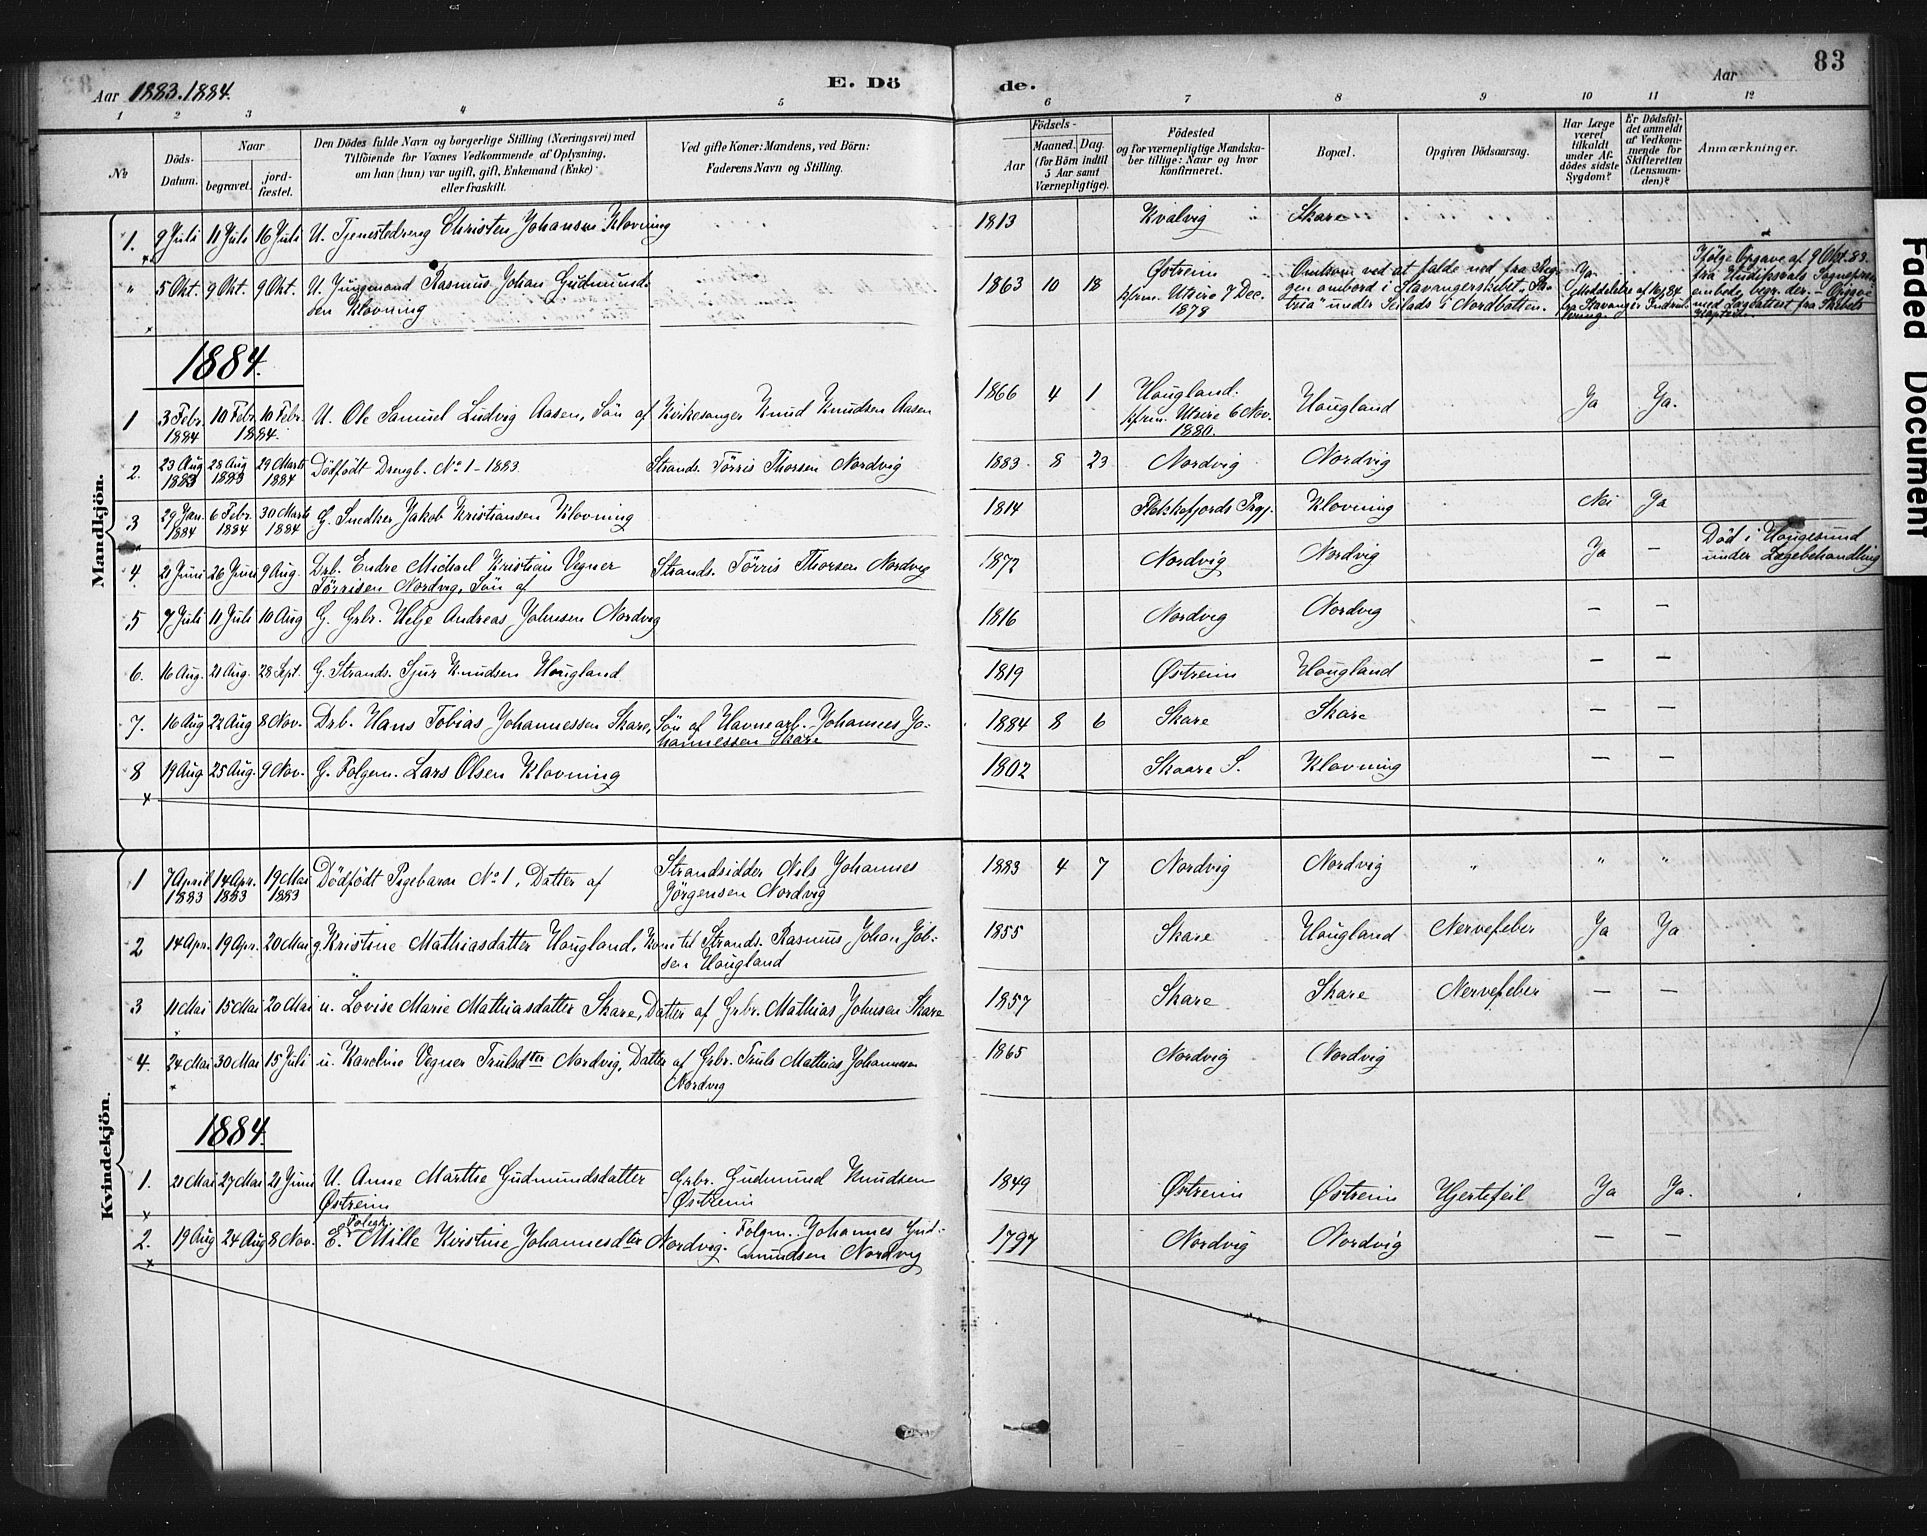 83
Aar 1883.1884.
E. Dö
de.
Aar
1 2 3 4 5 6 7 8 9 10 11 12
No
Döds-
Datum.
Naar
begravet.
jord-
fæstet.
Den Dödes fulde Navn og borgerlige Stilling (Næringsvei) med
Tilföiende for Voxnes Vedkommende af Oplysning,
om han (hun) var ugift, gift, Enkemand (Enke)
eller fraskilt.
Ved gifte Koner: Mandens, ved Börn:
Faderens Navn og Stilling.
Födsels-
Aar
Maaned. Dag.
(for Börn indtil
5 Aar samt
Værnepligtige).
Födested
og for værnepligtige Mandska-
ber tillige: Naar og hvor
konfirmeret.
Bopæl.
Opgiven Dödsaarsag.
Har Læge
været
tilkaldt
under Af-
dödes sidste
Sygdom?
Er Dödsfal-
det anmeldt
af Vedkom-
mende for
Skifteretten
(Lensman-
den)?
Anmærkninger.
Mandkjön.
1. 9 Juli 11 Juli 16 Juli U. Tjenestedreng Christen Johansen Klovning 1813 Kvalvig Skare
" 5 Okt. 9 Okt. 9 Okt. U. Jungmand Rasmus Johan Gudmund-
sen Klovning
1863 10 18 Østreim
kfrm. Utsire 7 Dec.
1878
Omkom ved at falde ned fra Reg-
gen ombord i Stavangerskibet
under Seilads i Nordbotten.
Ja
Meddelelse af
Ifölge Opgave af 9 Okt. 83.
fra Hudiksvals
embede begr. der.
med fra Skibets
1884.
1 3 Febr. 10 Febr. 10 Febr. U. Ole Samuel Ludvig Aasen, Sön af Kirkesanger Knud Knudsen Aasen 1866 4 1 Hougland. Hougland Ja Ja.
1884 1884.
kfrm. Utsire 6 Nov.
1880.
2. 23 Aug 28 Aug 29 Marts Dödfödt Drengb. No 1 - 1883. Strands. Törris Thorsen Nordvig 1883 8 23 Nordvig Nordvig
1883 1883 1884
3 29 Jan. 6 Febr. 30 Marts G. Snedker Jakob Kristiansen Klovning 1814 Flekkefjords Klovning Nei Ja
1884 1884 1884
4. 21 Juni 26 Juni 9 Aug. Drb. Endre Michael Kristian Vegner
Törrisen Nordvig, Sön af
Strands. Törris Thorsen Nordvig 1872 Nordvig Nordvig Ja —
Död i Hougesund
under Lægebehandling
5 7 Juli 11 Juli 10 Aug G. Grbr. Helje Andreas Johnsen Nordvig 1816 Nordvig Nordvig — —
6. 16 Aug. 21 Aug. 28 Sept. G. Strands. Sjur Knudsen Hougland 1819 Østreim Hougland — —
7. 16 Aug 22 Aug 8 Nov. Drb. Hans Tobias Johannessen Skare, Sön af Havnearb. Johannes Jo-
hannessen Skare
1884 8 6 Skare Skare — —
8 19 Aug 25 Aug. 9 Nov. G. Folgem. Lars Olsen Klovning 1802 Skaare S. Klovning — —
Kvindekjön.
1 7 April 14 Apr. 19 Mai Dödfödt Pigebarn No 1, Datter af Strandsidder Nils Johannes
1883 1883 1883
Jörgensen Nordvig
1883 4 7 Nordvig Nordvig " " "
2 14 Apr. 19 Apr. 20 Mai g. Kristine Mathiasdatter Hougland, Kone til Strands. Rasmus Johan Job-
sen Hougland
1855 Skare Hougland Nervefeber Ja Ja
3 11 Mai 15 Mai 20 Mai u. Lovise Marie Mathiasdatter Skare, Datter af Grbr. Mathias Johnsen Skare 1857 Skare Skare Nervefeber — —
4. 24 Mai 30 Mai 15 Juli u. Karoline Vegner Trulsdter Nordvig, Datter af Grbr. Truls Mathias Johannesen
Nordvig
1865 Nordvig Nordvig
1884.
1. 21 Mai 27 Mai 21 Juni U. Anne Marthe Gudmundsdatter
Østreim
Grbr. Gudmund Knudsen
Østreim
1849 Østreim Østreim Hjertefeil Ja Ja.
2. 19 Aug 24 Aug 8 Nov. E. Mille Kristine Johannesdter Nordvig. Folgm. Johannes Gud-
mundsen Nordvig
1797 Nordvig Nordvig — —
Faded Document